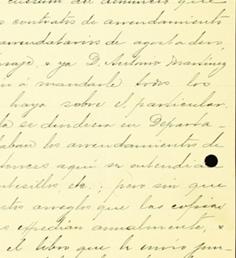 de anuncio que
s contratos de arrendamiento
arrendatarios de agostadero,
raje, & ya D. Antonio Martinez
n á mandarle todos los
haya sobre el particular.
se dividieran en Departa-
taban los arrendamientos de
tonces aqui se entendian
etc.; pero sin que
arreglos que las copias
expedian anualmente, &
el libro que le envio pun-